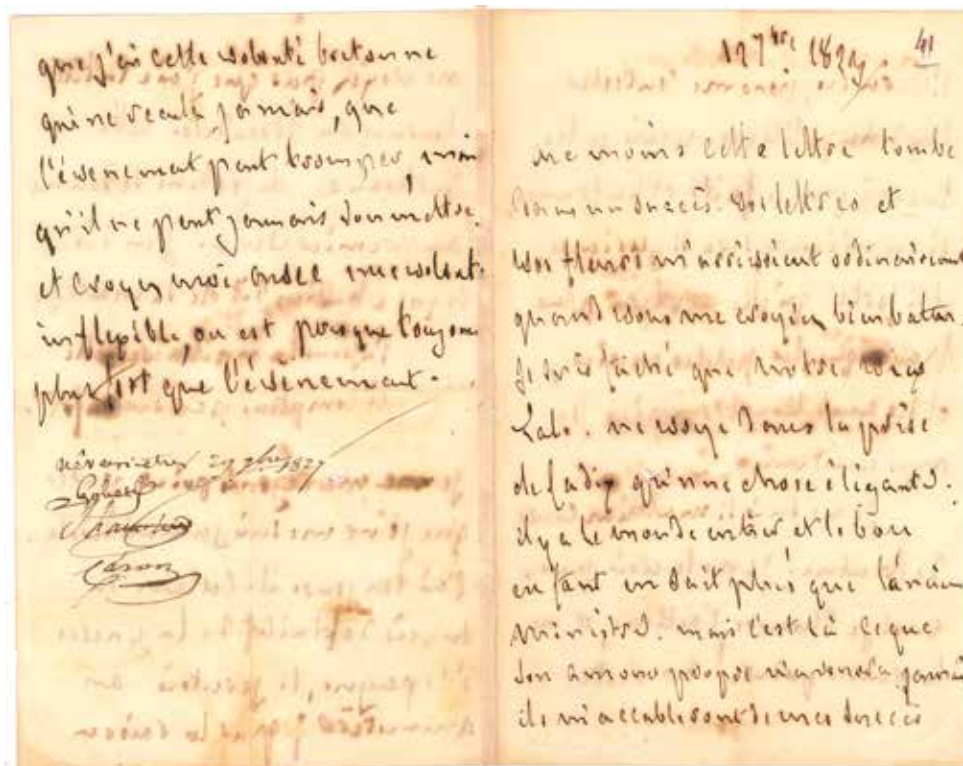 que j'ai cette volonté bretonne
qui ne recule jamais, que
l'évènement peut tromper, mais
qu'il ne peut jamais soumettre.
et croyez moi avec une volonté
inflexible, on est presque toujours
plus fort que l'évènement.
29 9bre 1829
Caron
17 7bre 1829 41
moins cette lettre tombe
dans un succès. vos lettres et
vos fleurs m'arrivoient ordinairement
quand vous me croyiez bien battu.
Je suis fâché que votre vieux
ne voye dans la prise
de Cadix qu'une chose élégante.
il y a le monde entier et le bon
enfant en sait plus que l'ancien
ministre. mais c'est là ce que
son amour propre n'avouera jamais
ils m'accableront de mes succès